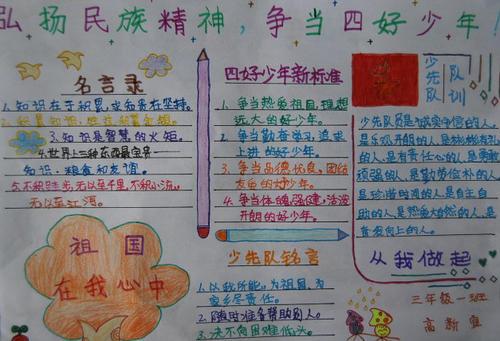 弘扬民族精神,争当四好少年!
名言录
1.知识在于积累,求知贵在坚持。
3.知识是智慧的火炬。
4.世界上三种东西最宝贵——
知识,粮食和友谊。
5.不积跬步,无以至千里,不积小流,
无以至江海。
四好少年新标准
1.争当热爱祖国,理想
远大的好少年。
2.争当勤奋学习,追求
上进的好少年。
3.争当品德优良,团结
友爱的好少年。
4.争当体魄强健,活泼
开朗的好少年。
少先队
队训
少先队员是诚实守信的人,
是乐观开朗的人,是彬彬有礼
的人,是有责任心的人,是勇敢
顽强的人,是勤劳俭朴的人,
是珍惜时间的人,是自主自
助的人,是热爱大自然的人,是
奋发向上的人。
从我做起
三年级一班
高新宜
祖国
在我心中
少先队铭言
1.以我所能,为祖国,为
家乡尽责任。
2.随时准备帮助别人。
3.决不向困难低头。